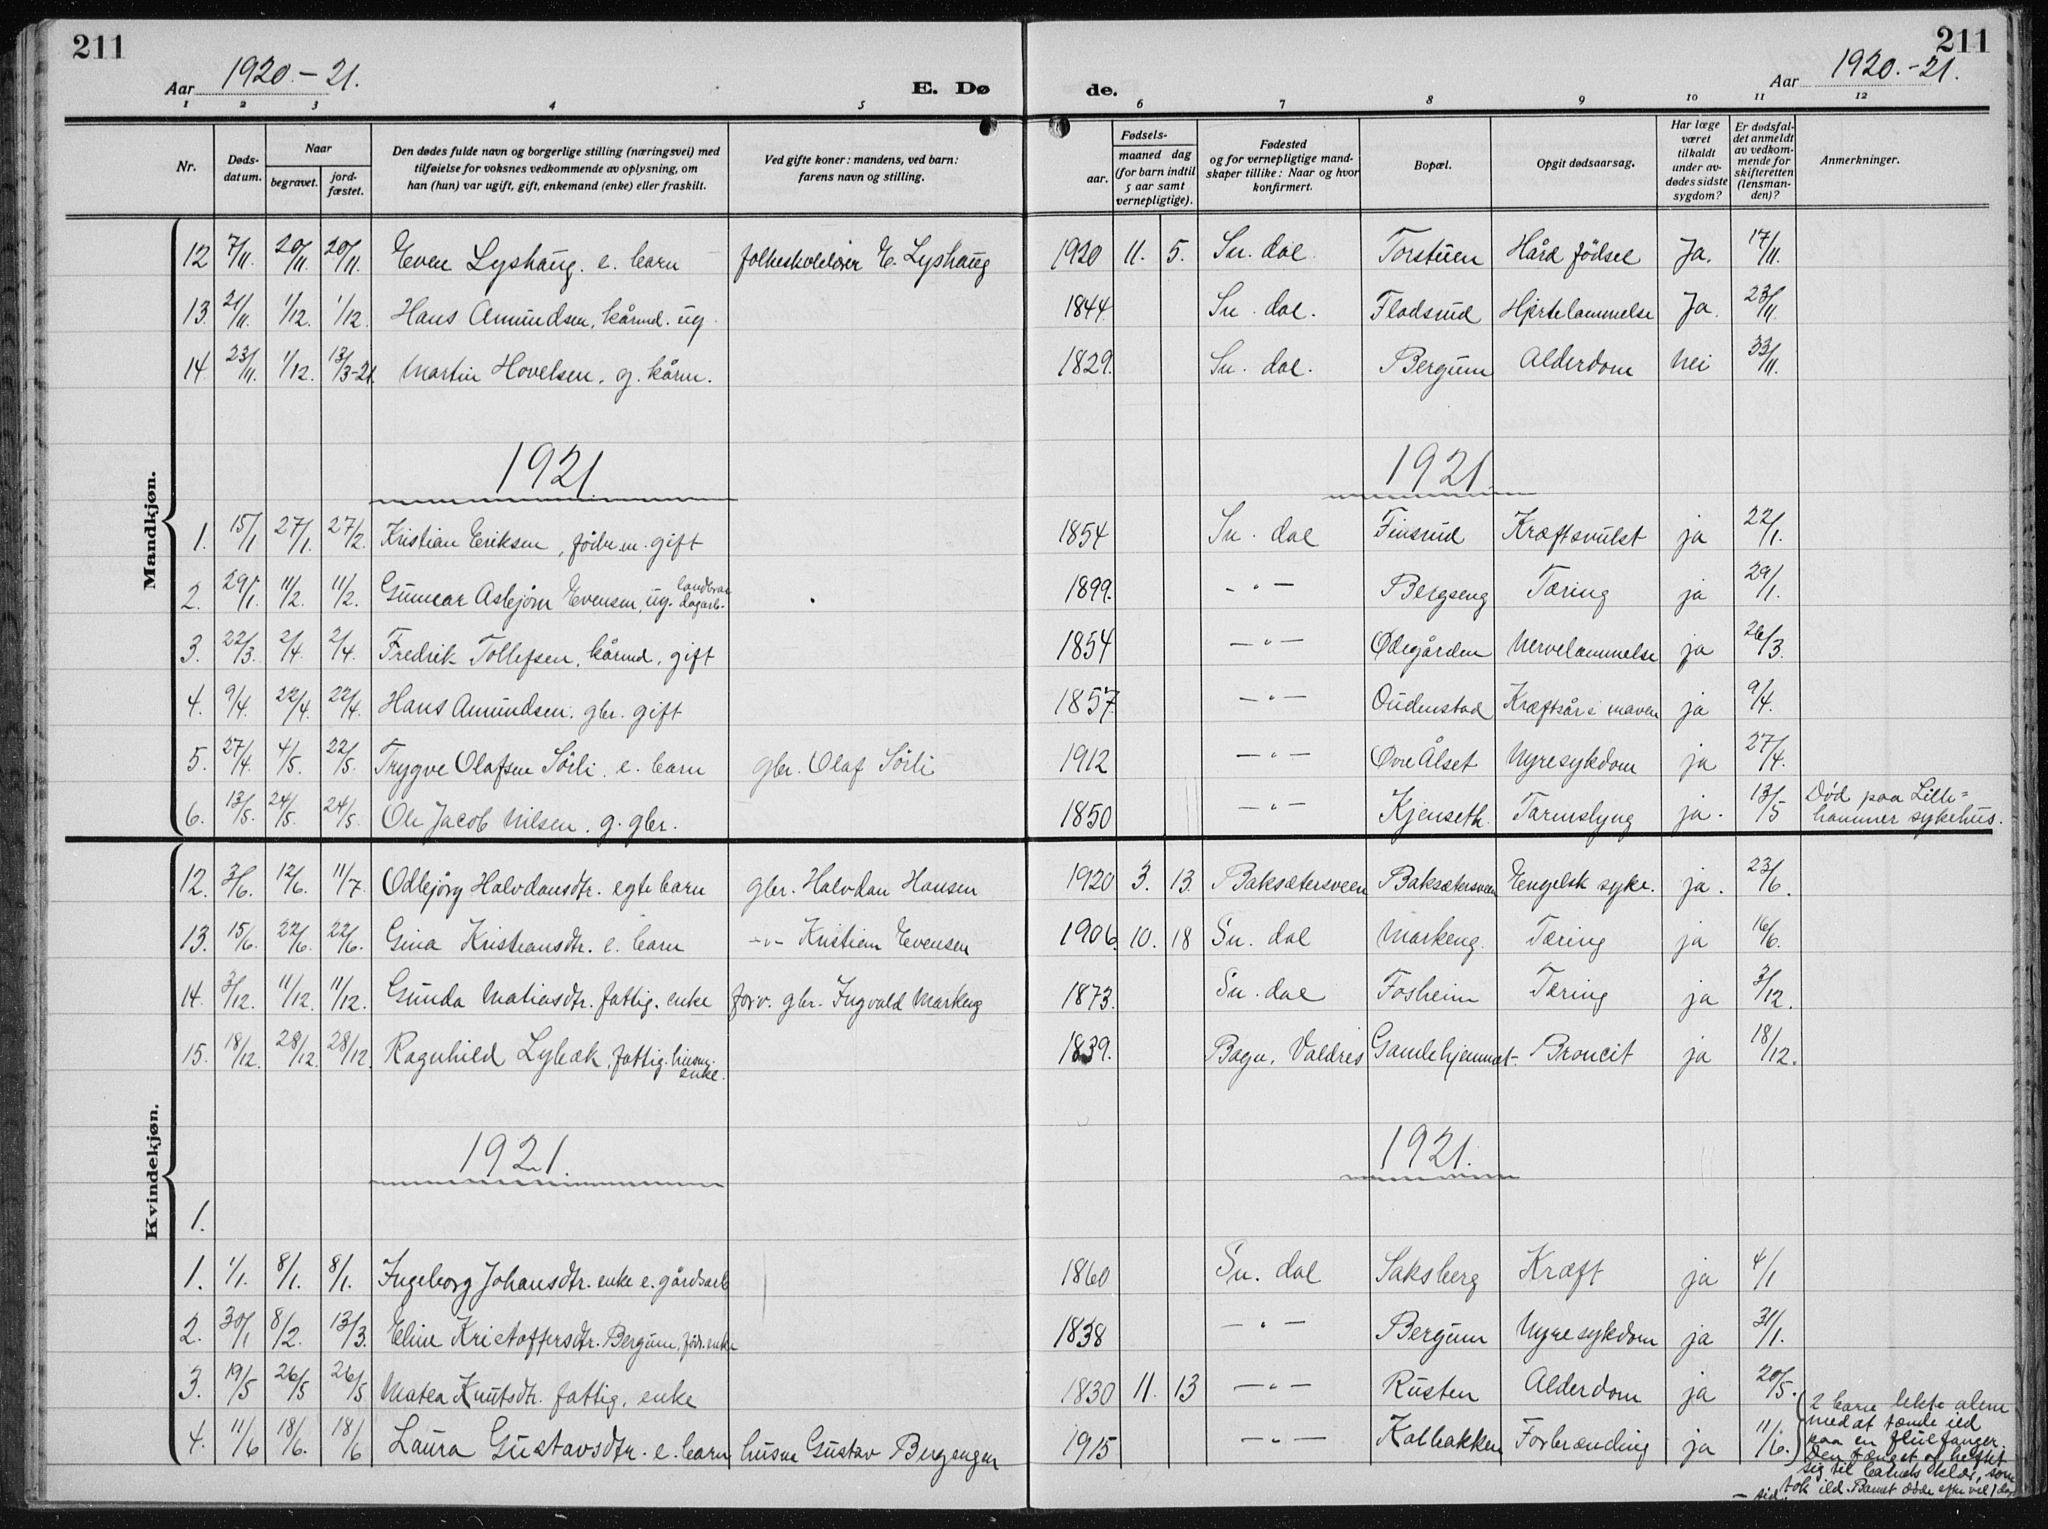 211
211
Aar 1920.-21.
E. Dø
de.
Aar 1920.-21.
1 2 3 4 5 6 7 8 9 10 11 12
Nr.
Døds-
datum.
Naar
begravet.
jord-
fæstet.
Den dødes fulde navn og borgerlige stilling (næringsvei) med
tilføielse for voksnes vedkommende av oplysning, om
han (hun) var ugift, gift, enkemand (enke) eller fraskilt.
Ved gifte koner: mandens, ved barn:
farens navn og stilling.
Fødsels-
aar.
maaned dag
(for barn indtil
5 aar samt
vernepligtige).
Fødested
og for vernepligtige mand-
skaper tillike: Naar og hvor
konfirmert.
Bopæl.
Opgit dødsaarsag.
Har læge
været
tilkaldt
under av-
dødes sidste
sygdom?
Er dødsfal-
det anmeldt
av vedkom-
mende for
skifteretten
(lensman-
den)?
Anmerkninger.
Mandkjøn.
12 7/11 20/11 20/11 Even Lyshaug. e. barn folkeskolelærer E. Lyshaug 1920 11. 5. Sn. dal Torstuen Hård fødsel Ja. 17/11.
13. 21/11 1/12. 1/12. Hans Amundsen, kårmd. ug. 1844. Sn. dal. Flodsrud Hjertelammelse Ja. 23/11
14. 23/11. 1/12. 13/3-21. Martin Hovelsen, g. kårm. 1829. Sn. dal. Bergum Alderdom Nei 33/11.
1921 1921.
1. 15/1 27/1. 27/2. Kristian Eriksen, föder.m. gift 1854 Sn. dal Finsrud Kræftsvulst ja 22/1.
2. 29/1. 11/2. 11/2. Gunnar Asbjørn Evensen, ug. 1899. -"- Bergseng Tæring ja 29/1.
3. 22/3. 2/4. 2/4. Fredrik Tollefsen, kårmd, gift 1854 -"- Ødegården Nervelammelse ja 26/3.
4. 9/4. 22/4. 22/4. Hans Amundsen. gbr. gift 1857. -"- Kræftsår i maven ja 9/4.
5. 27/4. 4/5. 22/5. Trygve Olafsen Sørli. e. barn gbr. Olaf Sørli 1912 -"- Øvre Ålset Nyresykdom ja 27/4.
6. 13/5. 24/5. 24/5. Ole Jacob Nilsen. g. gbr. 1850 -"- Kjenseth. Tarmslyng ja. 13/5 Død paa Lille-
hammer sykehus.
Kvindekjøn.
12. 3/6. 12/6. 11/7. Odbjørg Halvdansdtr. egte barn gbr. Halvdan Hansen 1920 3. 13. Baksætersveen Baksætersveen Engelsk syke. ja. 23/6.
13. 15/6. 22/6. 22/6. Gina Kristiansdtr. e. barn -"- Kristian Evensen 1906. 10. 18 Sn. dal Markeng. Tæring ja 16/6.
14. 3/12. 11/12. 11/12. Gunda Matiasdtr. fattig. enke forv. gbr. Ingvald Markeng 1873. Sn. dal Fosheim Tæring ja 3/12.
15. 18/12. 28/12. 28/12. Ragnhild Lybæk, fattig.
enke. 1839. Bagn, Valdres Gamlehjemmet. Broncit ja 18/12.
1921. 1921.
1.
1. 1/1. 8/1. 8/1. Ingeborg Johansdtr. enke e. gårdsarb 1860 Sn. dal Saksberg Kræft ja 4/1
2. 30/1 8/2. 13/3. Eline Kristoffersdtr. Bergum, föder. enke 1838 -"- Bergum Nyresykdom ja 31/1.
3. 19/5 26/5 26/5 Matea Knutsdtr. fattig. enke 1830 11. 13 -"- Rusten Alderdom ja 20/5.
4. 11/6 18/6. 18/6 Laura Gustavsdtr. e. barn husm Gustav Bergengen 1915 -"- Kolbakken Forbrænding ja 11/6.
2 barn lekte alene
med at tænde ild
paa en fluefanger.
Den fænget og heftet
sig til barnets klær, som
tok ild. Barnet døde efter vel 1 dags
tid.